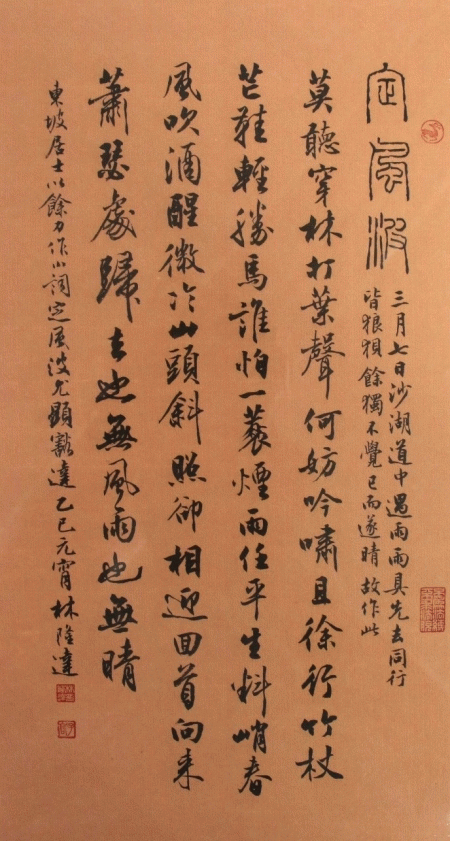 定風波
三月七日沙湖道中遇雨雨具先去同行
皆狼狽餘獨不覺已而遂晴故作此
莫聽穿林打葉聲何妨吟嘯且徐行竹杖
芒鞋輕勝馬誰怕一蓑煙雨任平生料峭春
風吹酒醒微冷山頭斜照卻相迎回首向來
蕭瑟處歸去也無風雨也無晴
東坡居士以餘力作小詞定風波尤顯豁達乙巳元宵林隆達